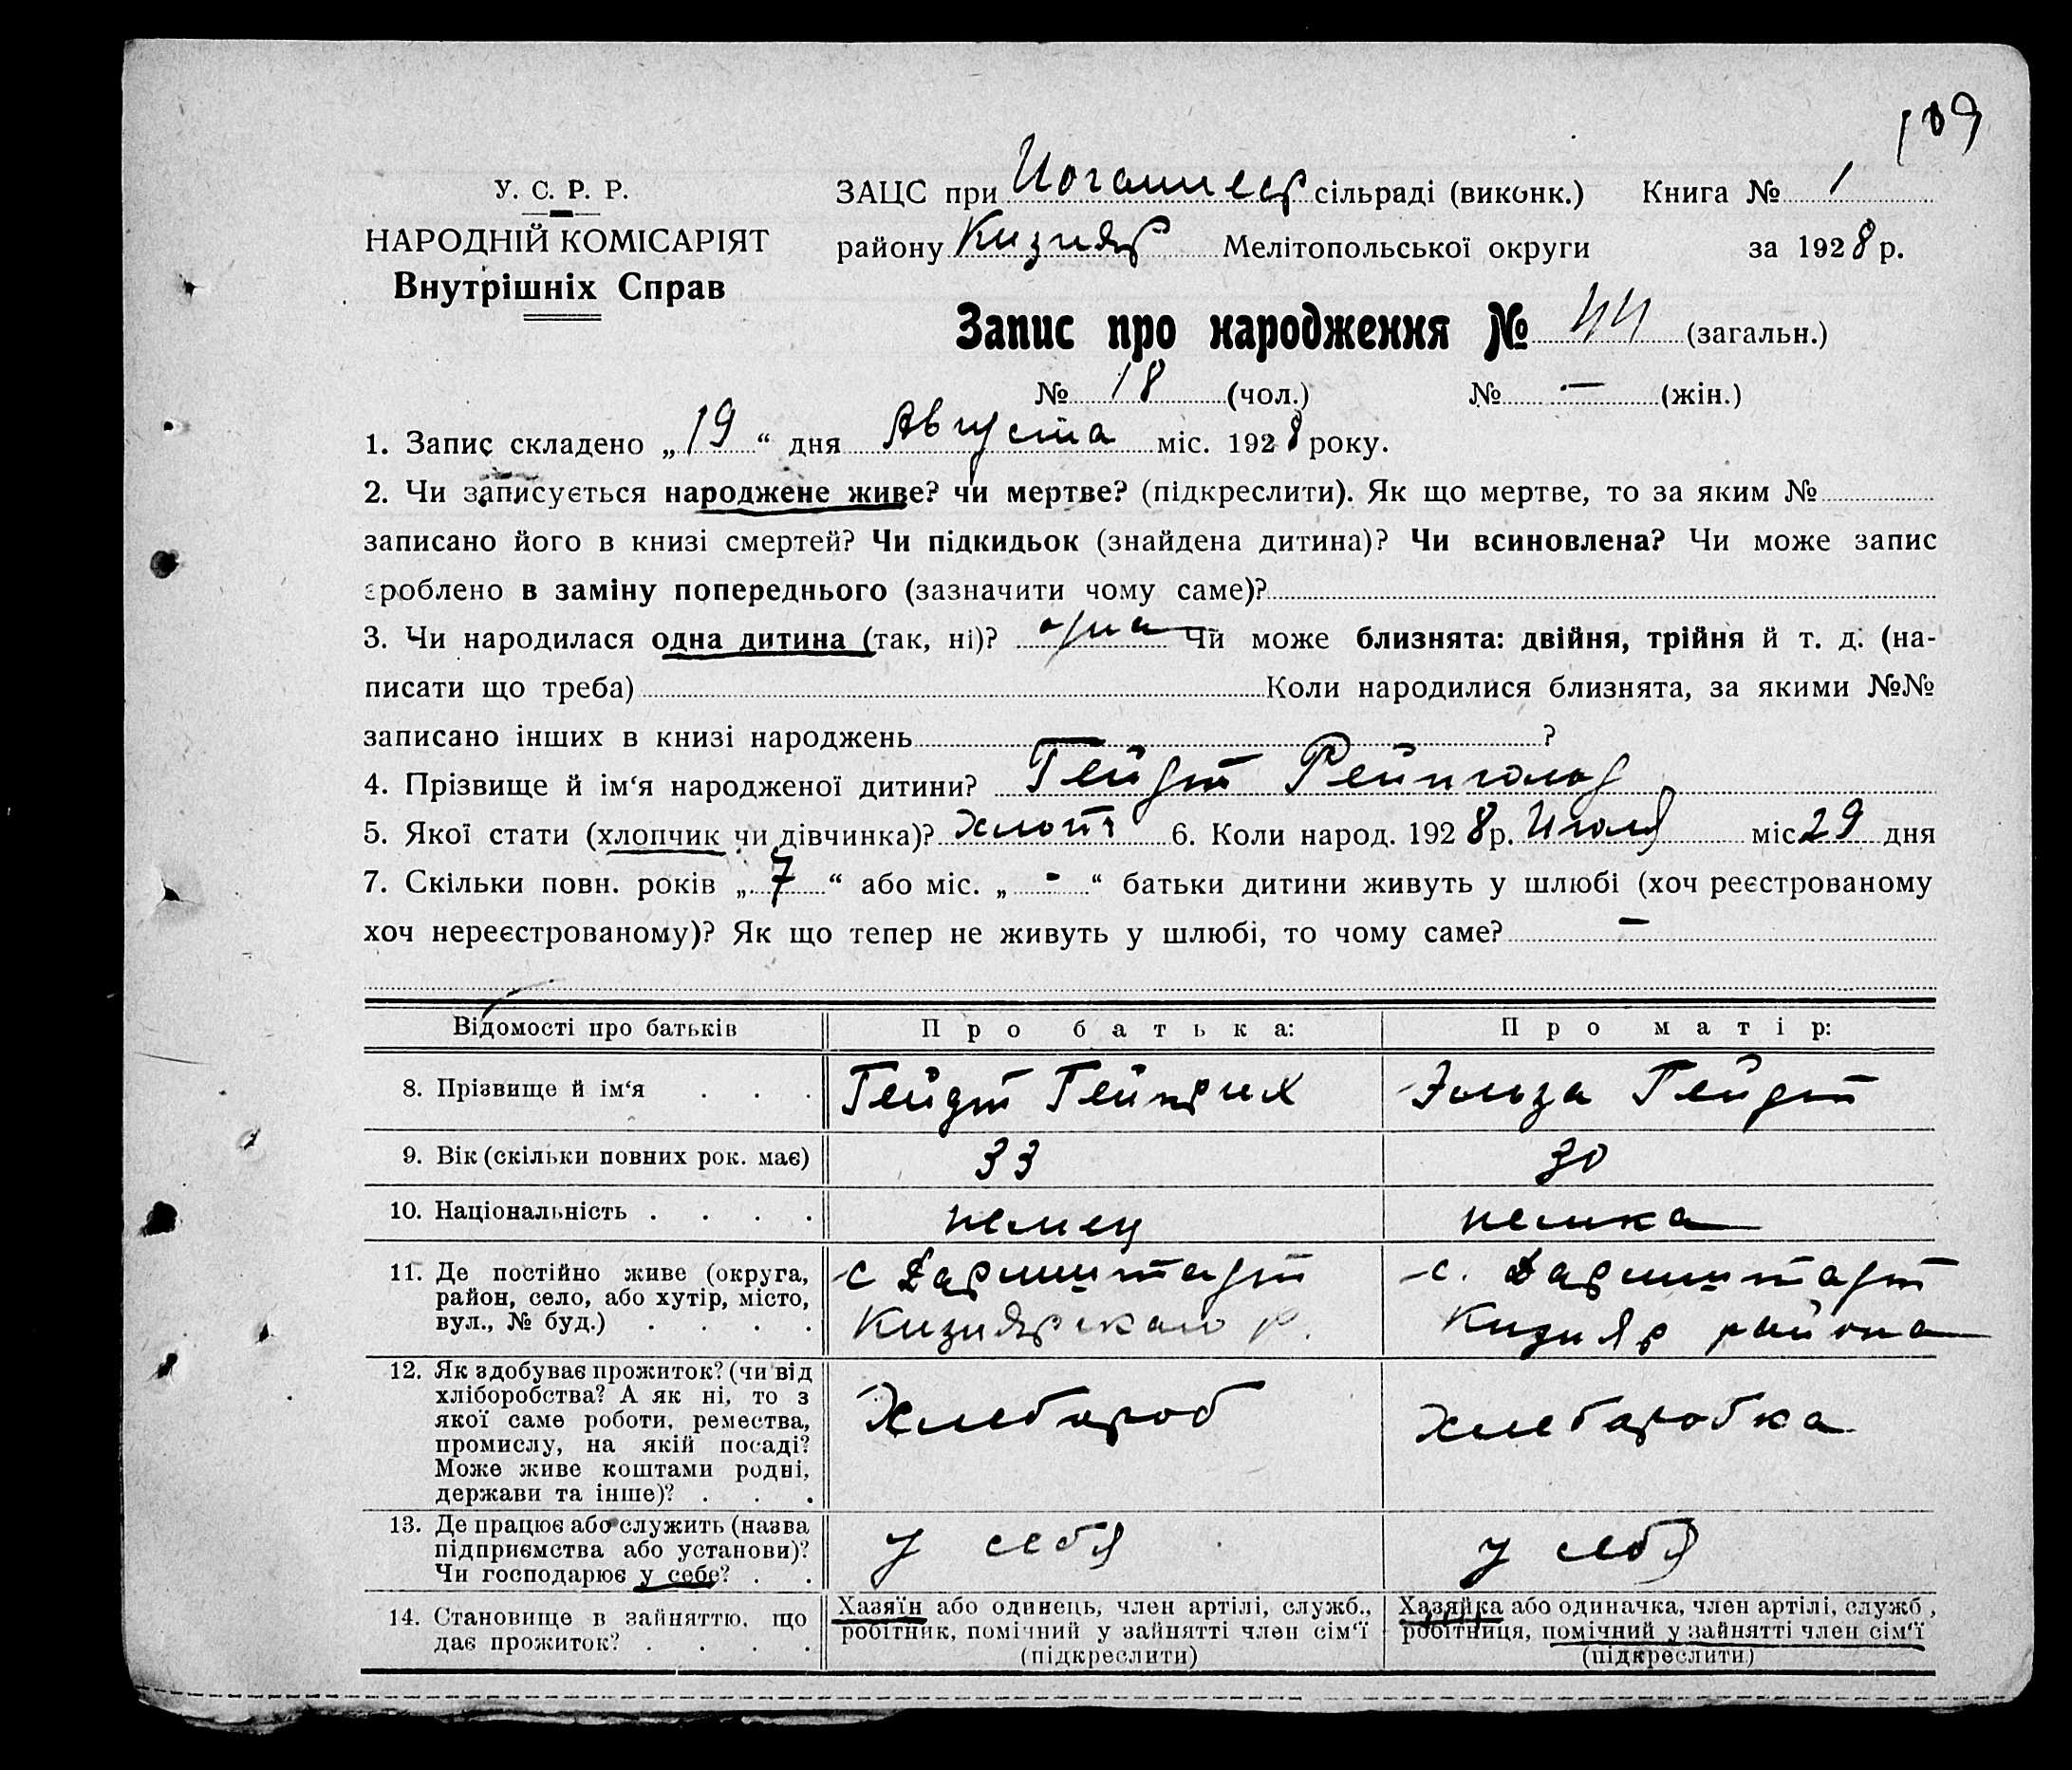 109
У. С. Р. Р.
НАРОДНІЙ КОМІСАРІЯТ
Внутрішніх Справ
ЗАЦС при Иоганнеср сільраді (виконк.) Книга № 1
району Кизияр Мелітопольської округи за 1928 р.
Запис про народження № 44 (загальн.)
№ 18 (чол.) № — (жін.)
1. Запис складено „19“ дня Августа міс. 1928 року.
2. Чи записується народжене живе? чи мертве? (підкреслити). Як що мертве, то за яким №
записано його в книзі смертей? Чи підкидьок (знайдена дитина)? Чи всиновлена? Чи може запис
зроблено в заміну попереднього (зазначити чому саме)?
3. Чи народилася одна дитина (так, ні)? одна Чи може близнята: двійня, трійня й т. д. (на-
писати що треба) Коли народилися близнята, за якими №№
записано інших в книзі народжень ?
4. Прізвище й ім‘я народженої дитини? Гейдт Рейнгольд
5. Якої стати (хлопчик чи дівчинка)? хлопч 6. Коли народ. 1928 р. Июля міс 29 дня
7. Скільки повн. років „7“ або міс. „-“ батьки дитини живуть у шлюбі (хоч реєстрованому
хоч нереєстрованому)? Як що тепер не живуть у шлюбі, то чому саме? —
Відомості про батьків Про батька: Про матір:
8. Прізвище й ім‘я . . . Гейдт Гейнрих Эльза Гейдт
9. Вік (скільки повних рок. має) 33 30
10. Національність . . . . немец немка
11. Де постійно живе (округа,
район, село, або хутір, місто,
вул., № буд.) . . . .
с Дармштадт
Кизиярскаго р.
с. Дармштадт
Кизияр района
12. Як здобуває прожиток? (чи від
хліборобства? А як ні, то з
якої саме роботи, ремества,
промислу, на якій посаді?
Може живе коштами родні,
держави та інше)? . . .
Хлебороб
Хлебаробка
13. Де працює або служить (назва
підприємства або установи)?
Чи господарює у себе? . .
у себя
у себя
14. Становище в зайняттю, що
дає прожиток? . . . .
Хазяїн або одинець, член артілі, служб.,
робітник, помічний у зайнятті член сім‘ї
(підкреслити)
Хазяйка або одиначка, член артілі, служб,
робітниця, помічний у зайнятті член сім‘ї
(підкреслити)